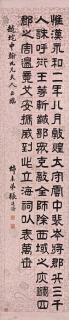 惟漢永和二年八月敦煌太守雲中裴岑將郡兵三千
人誅呼衍王等斬馘部眾克敵全師除西域之疢蠲四
郡之害邊竟艾安振威到此立海祠以表萬世
中翰九兄大人正